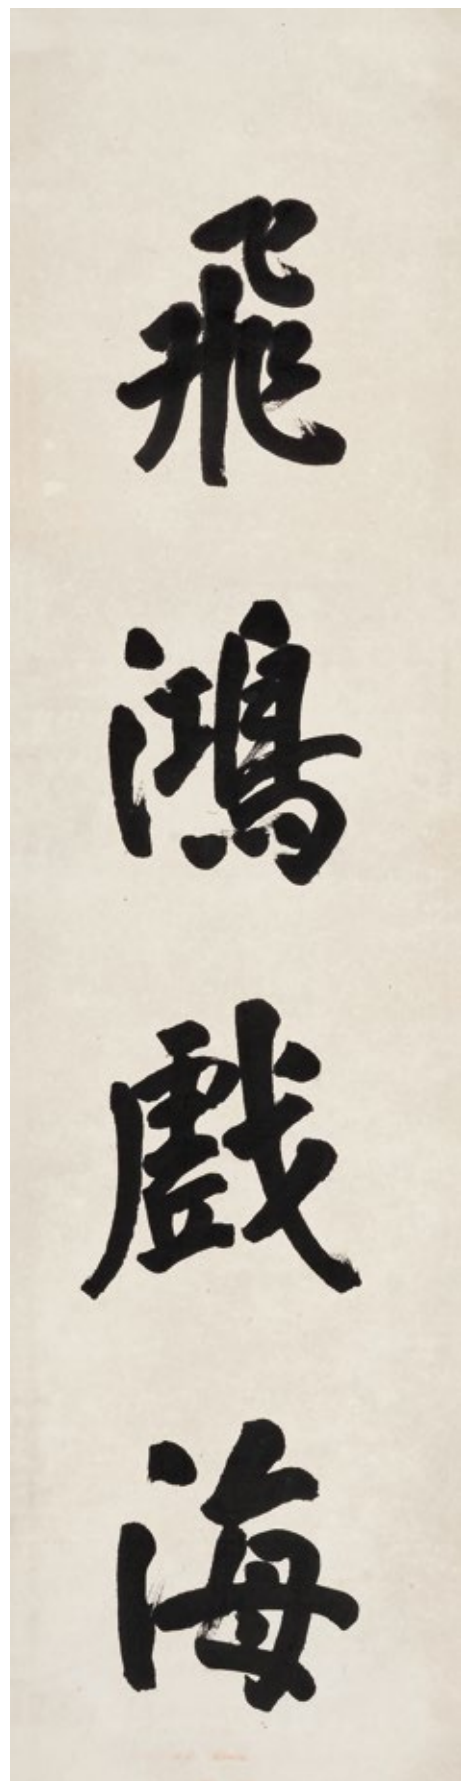 飛鴻戲海